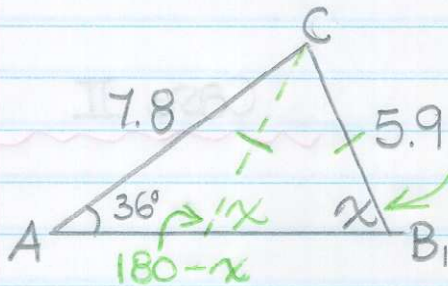 C
7.8
5.9
36°
x
x
A
B₁
180-x